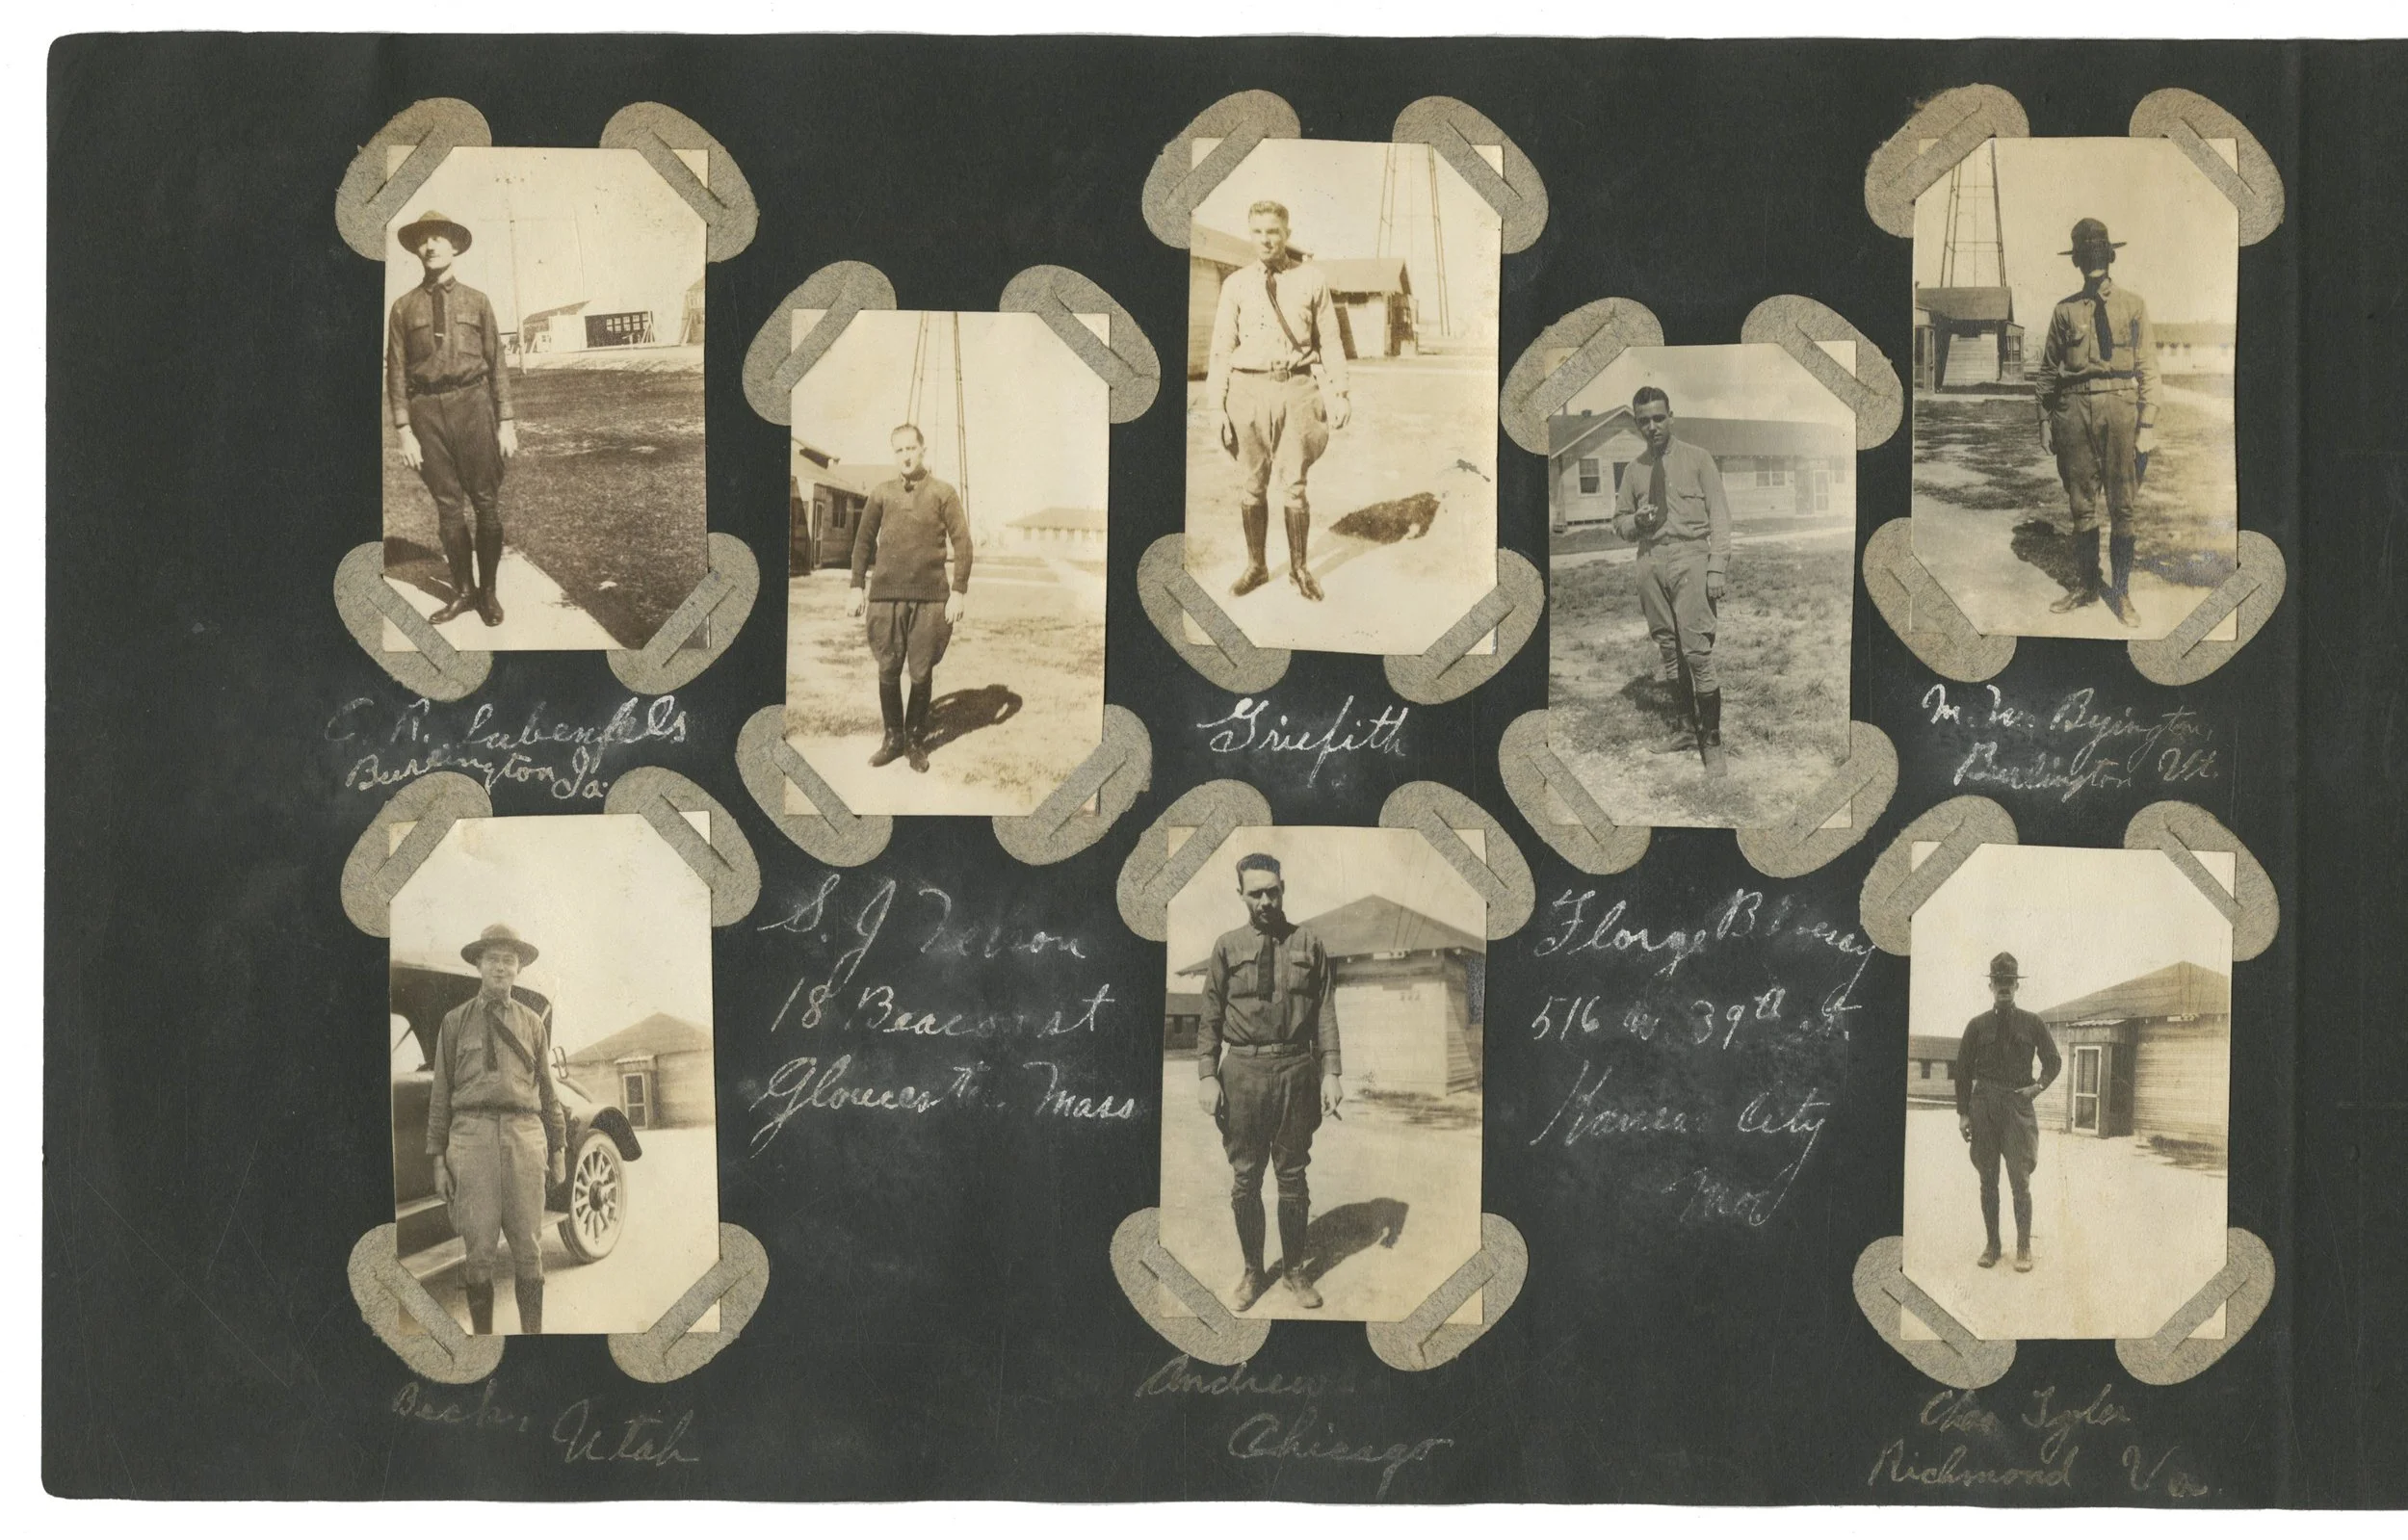 C. R.
Burlington Ia.
Griefith
Byington,
Burlington Vt.
S. J
18 Beacon st
Gloucester Mass
516 W 39th St.
Kansas City
Mo
Beck,
Utah
Andrew
Chicago
Chas Tyler
Richmond Va.